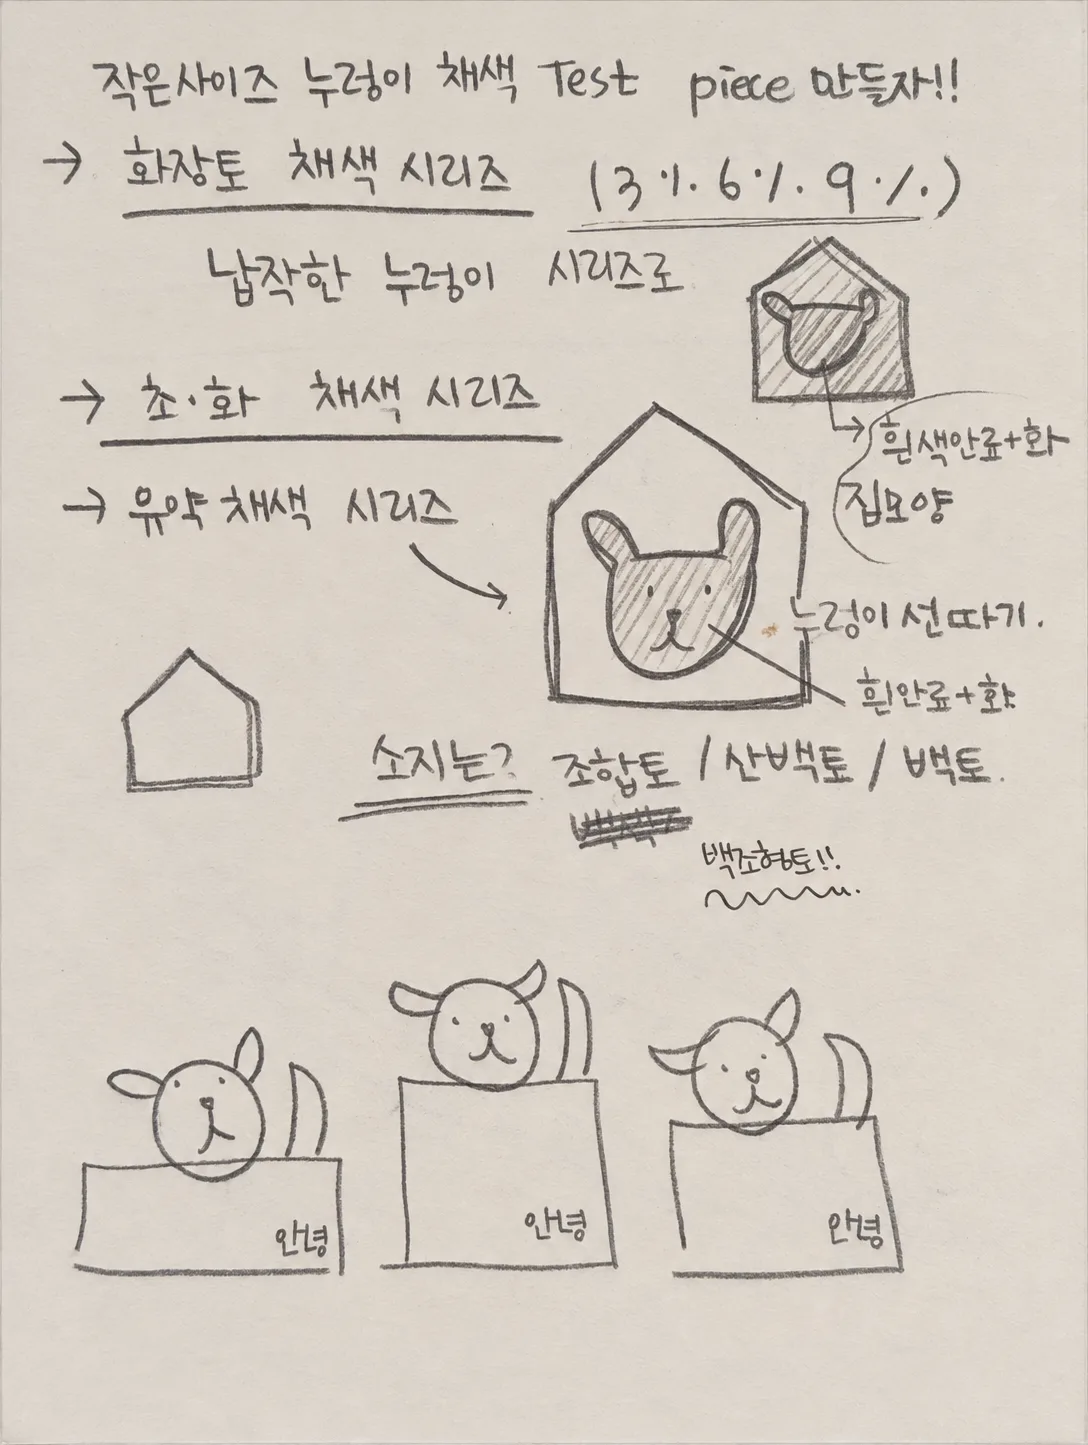 작은사이즈 누렁이 채색 Test piece 만들자!!
→ 화장토 채색 시리즈 (3%. 6%. 9%.)
납작한 누렁이 시리즈로
→ 초·화 채색 시리즈
흰색안료+화
집모양
→ 유약 채색 시리즈
누렁이 선따기.
흰안료+화
소지는? 조합토 / 산백토 / 백토.
백조형토!!
안녕
안녕
안녕